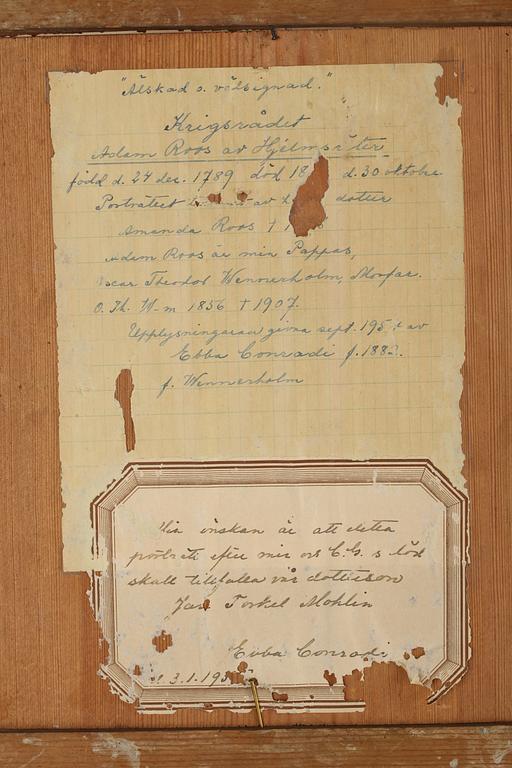 "Älskad o. välsignad."
Krigsrådet
Adam Roos av Hjelmsäter
född d. 24 dec. 1789 död 18 d. 30 oktober
Porträttet av dotter
Amanda Roos †
Adam Roos är min Pappas,
Oscar Theodor Wennerholm, Morfar.
O. Th. W-m 1856 † 1907.
Upplysningarna givna sept. 195 av
Ebba Conradi f. 188
f. Wennerholm
Min önskan är att detta
porträtt efter min och C.G. s död
skall tillfalla vår dotterson
Jan Torkel Mohlin
Ebba Conradi
3.1.19